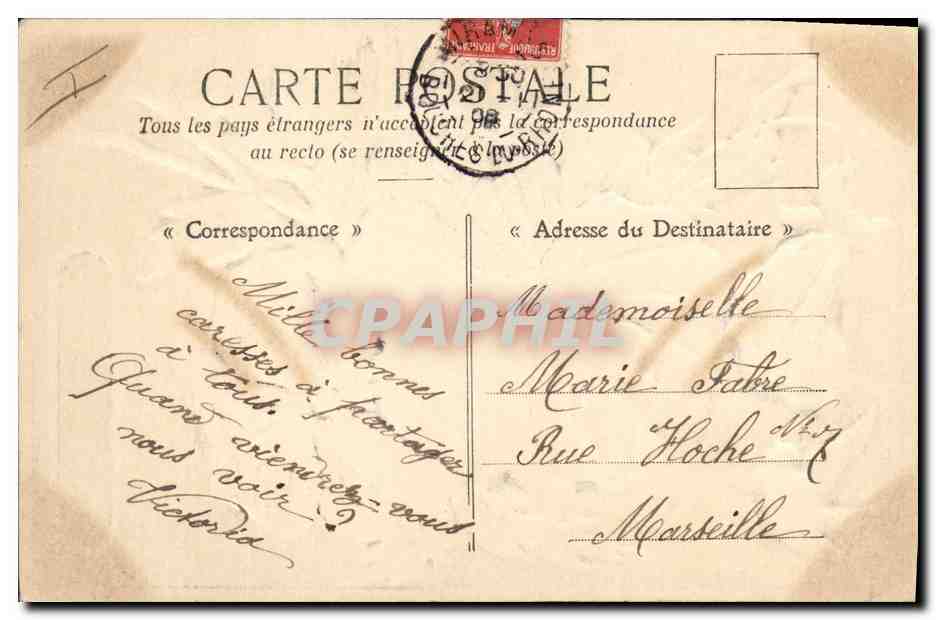 CARTE POSTALE
Tous les pays étrangers n'acceptent pas la correspondance
au recto (se renseigner à la poste)
« Correspondance »
« Adresse du Destinataire »
Mille bonnes
caresses à partager
à tous.
Quand viendrez-vous
nous voir ?
Victoria
Mademoiselle
Marie Fabre
Rue Hoche No 7
Marseille
CPAPHIL
BOUCHES-DU-RHONE